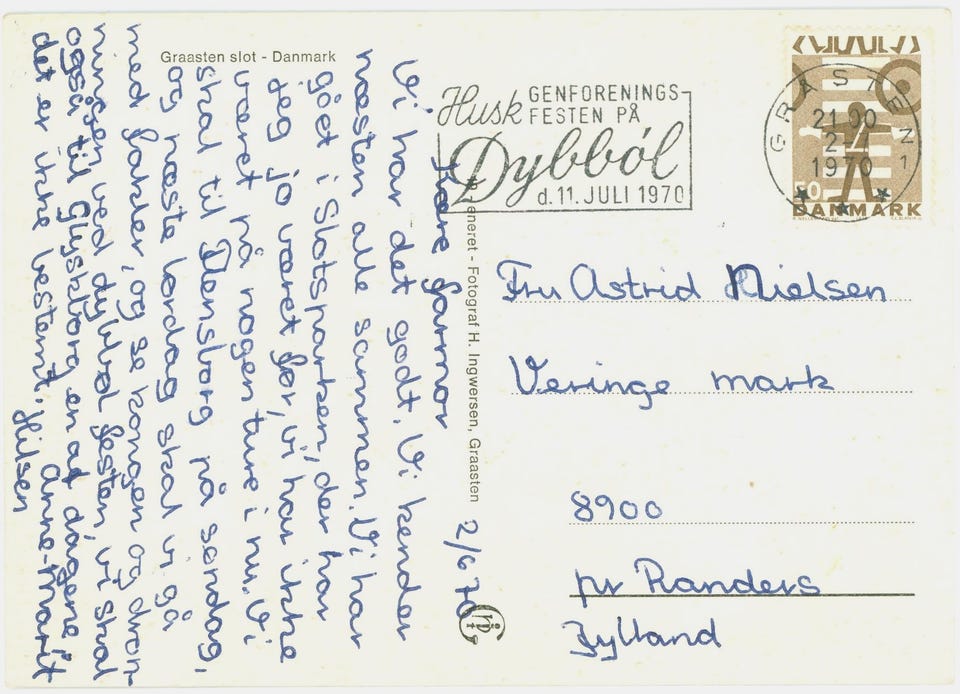 Graasten slot - Danmark
Kære farmor 2/6 70
Vi har det godt. Vi kender
næsten alle sammen. Vi har
gået i Slotsparken, der har
jeg jo været før, vi har ikke
været på nogen ture i nu. Vi
skal til Flensborg på søndag,
og næste lørdag skal vi gå
med fakler, og se kongen og dron-
ningen ved dybbøl festen, vi skal
også til Glyksborg en af dagene,
det er ikke bestemt. Anne-Marit
Hilsen
Eneret - Fotograf H. Ingwersen, Graasten
Husk GENFORENINGS-
FESTEN PÅ
Dybböl
d. 11. JULI 1970
GRÅSTEN 1
21.00
1970
80
DANMARK
Fru Astrid Nielsen
Veringe mark
8900
pr Randers
Jylland